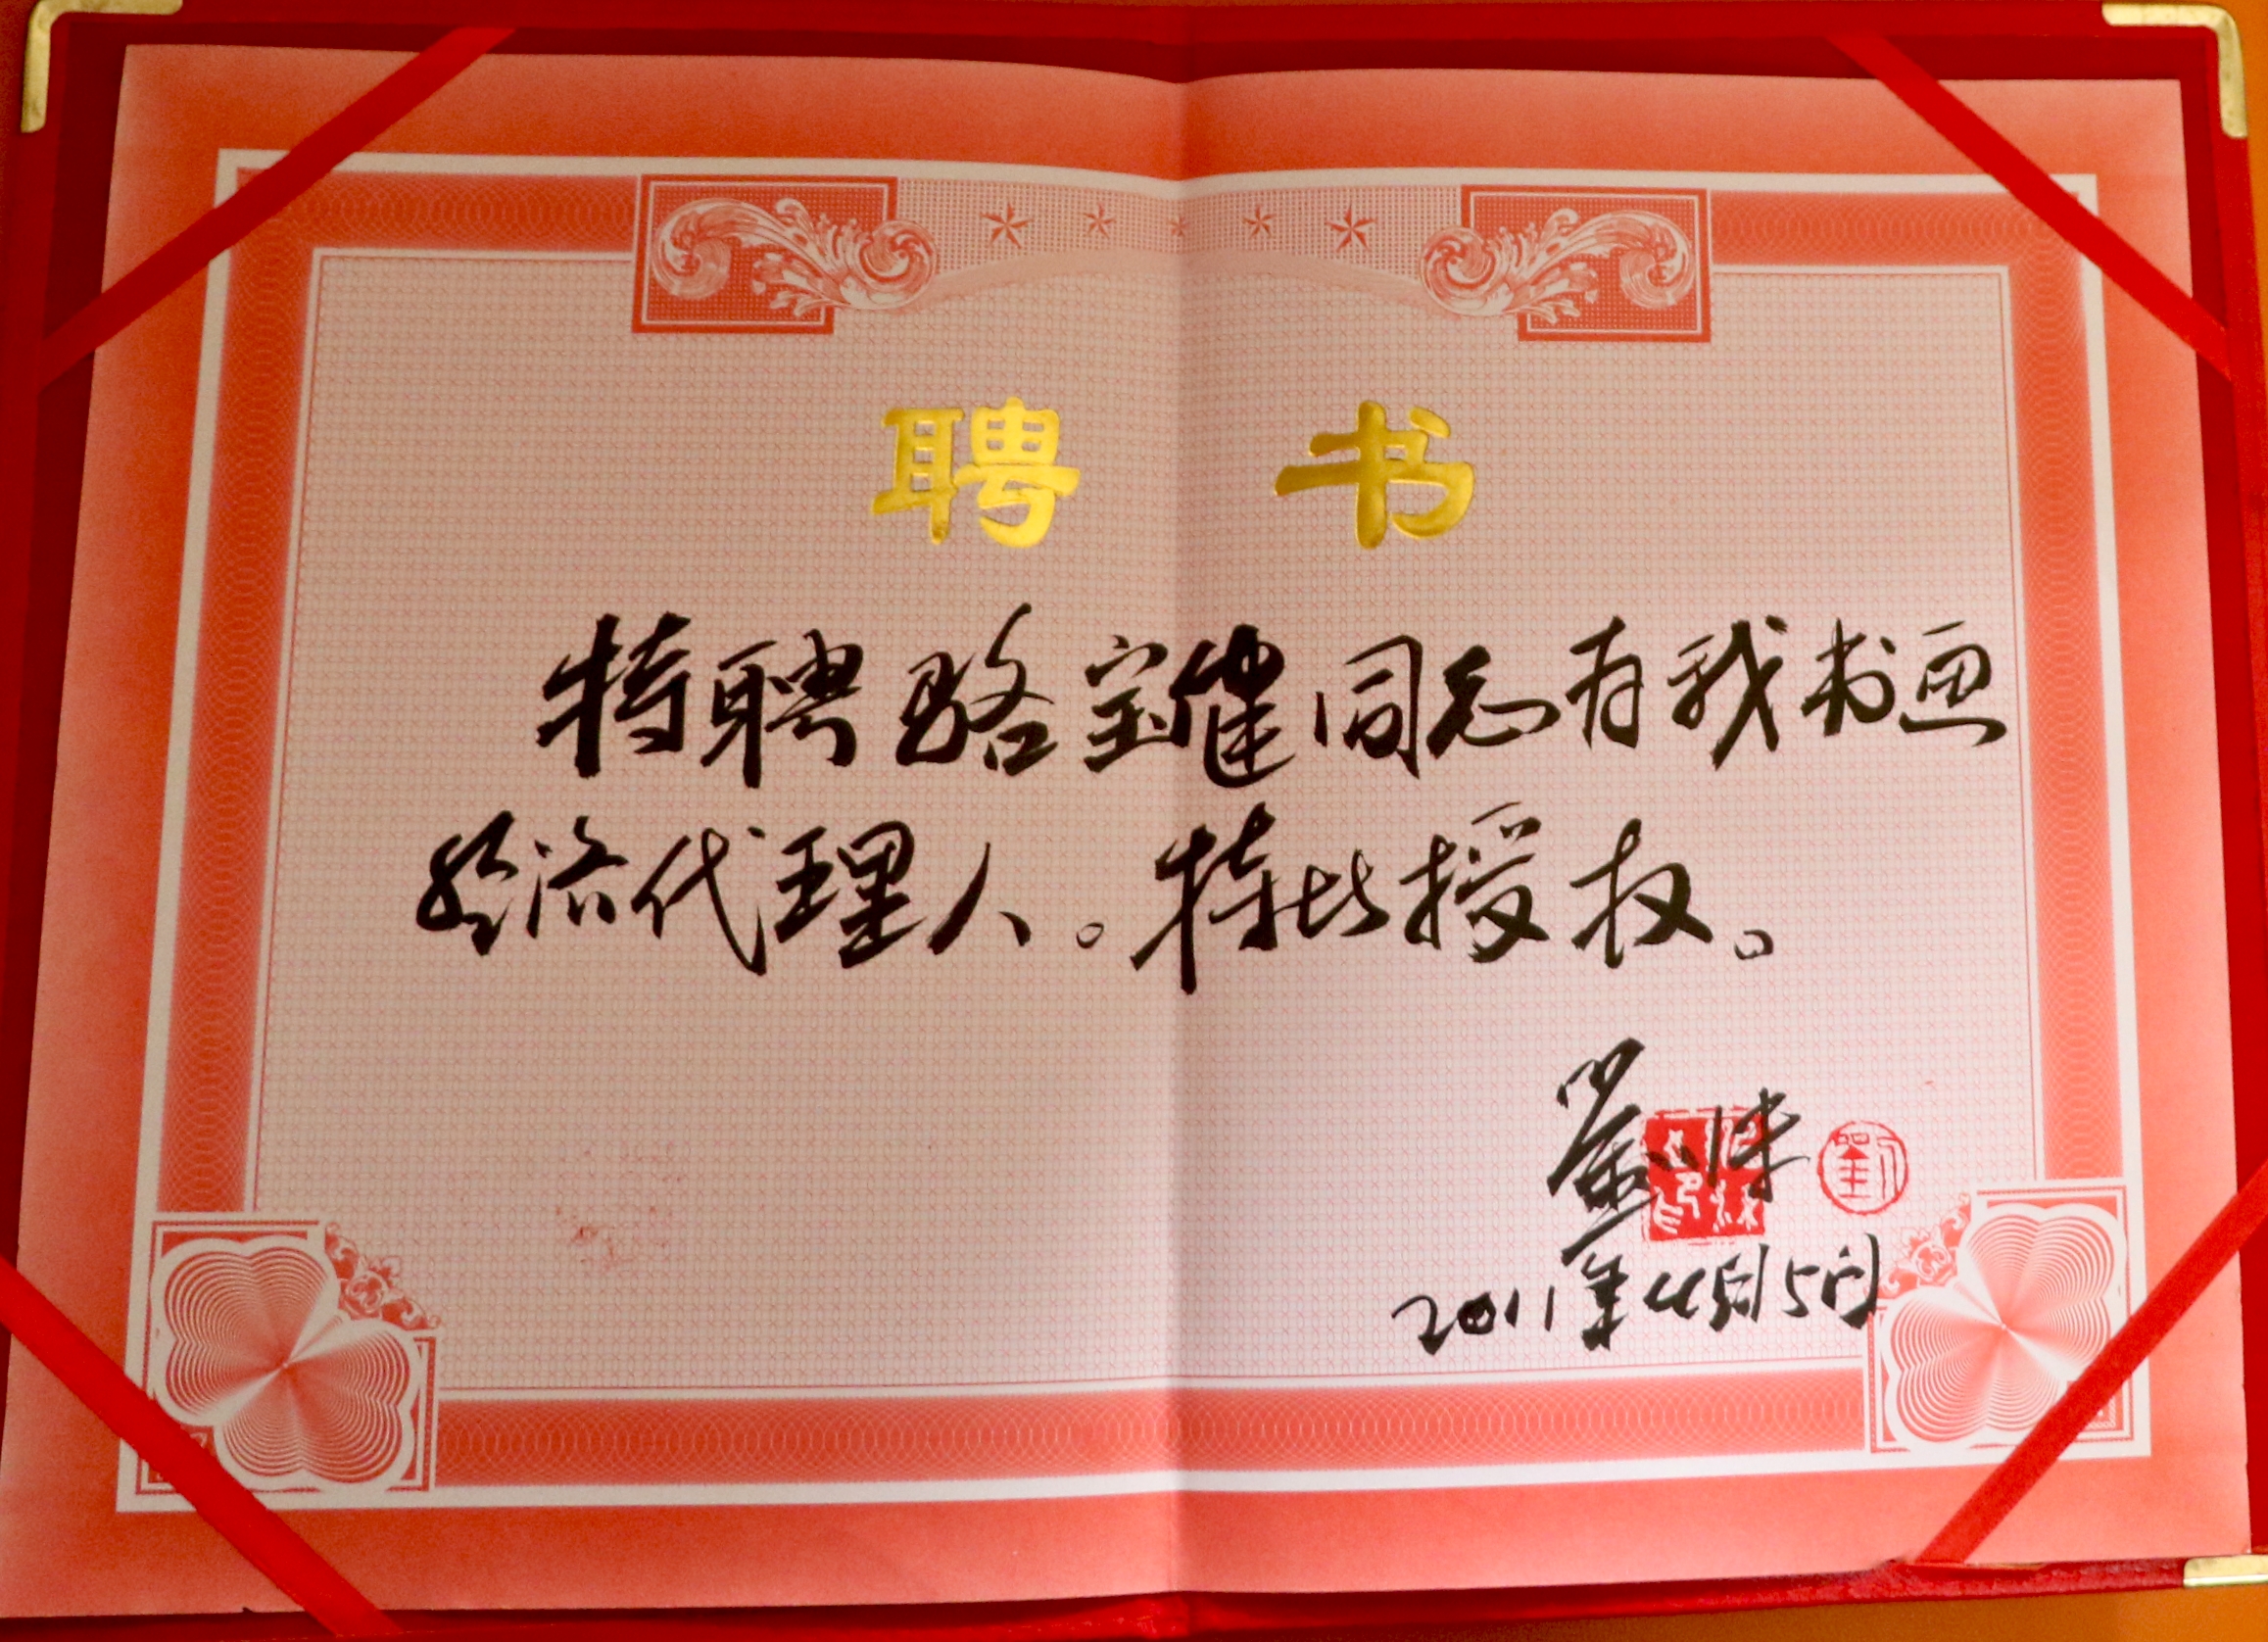 聘书
特聘骆宝健同志有我书画
经济代理人。特此授权。
2011年4月5日